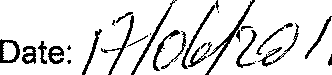 Date: 17/06/201